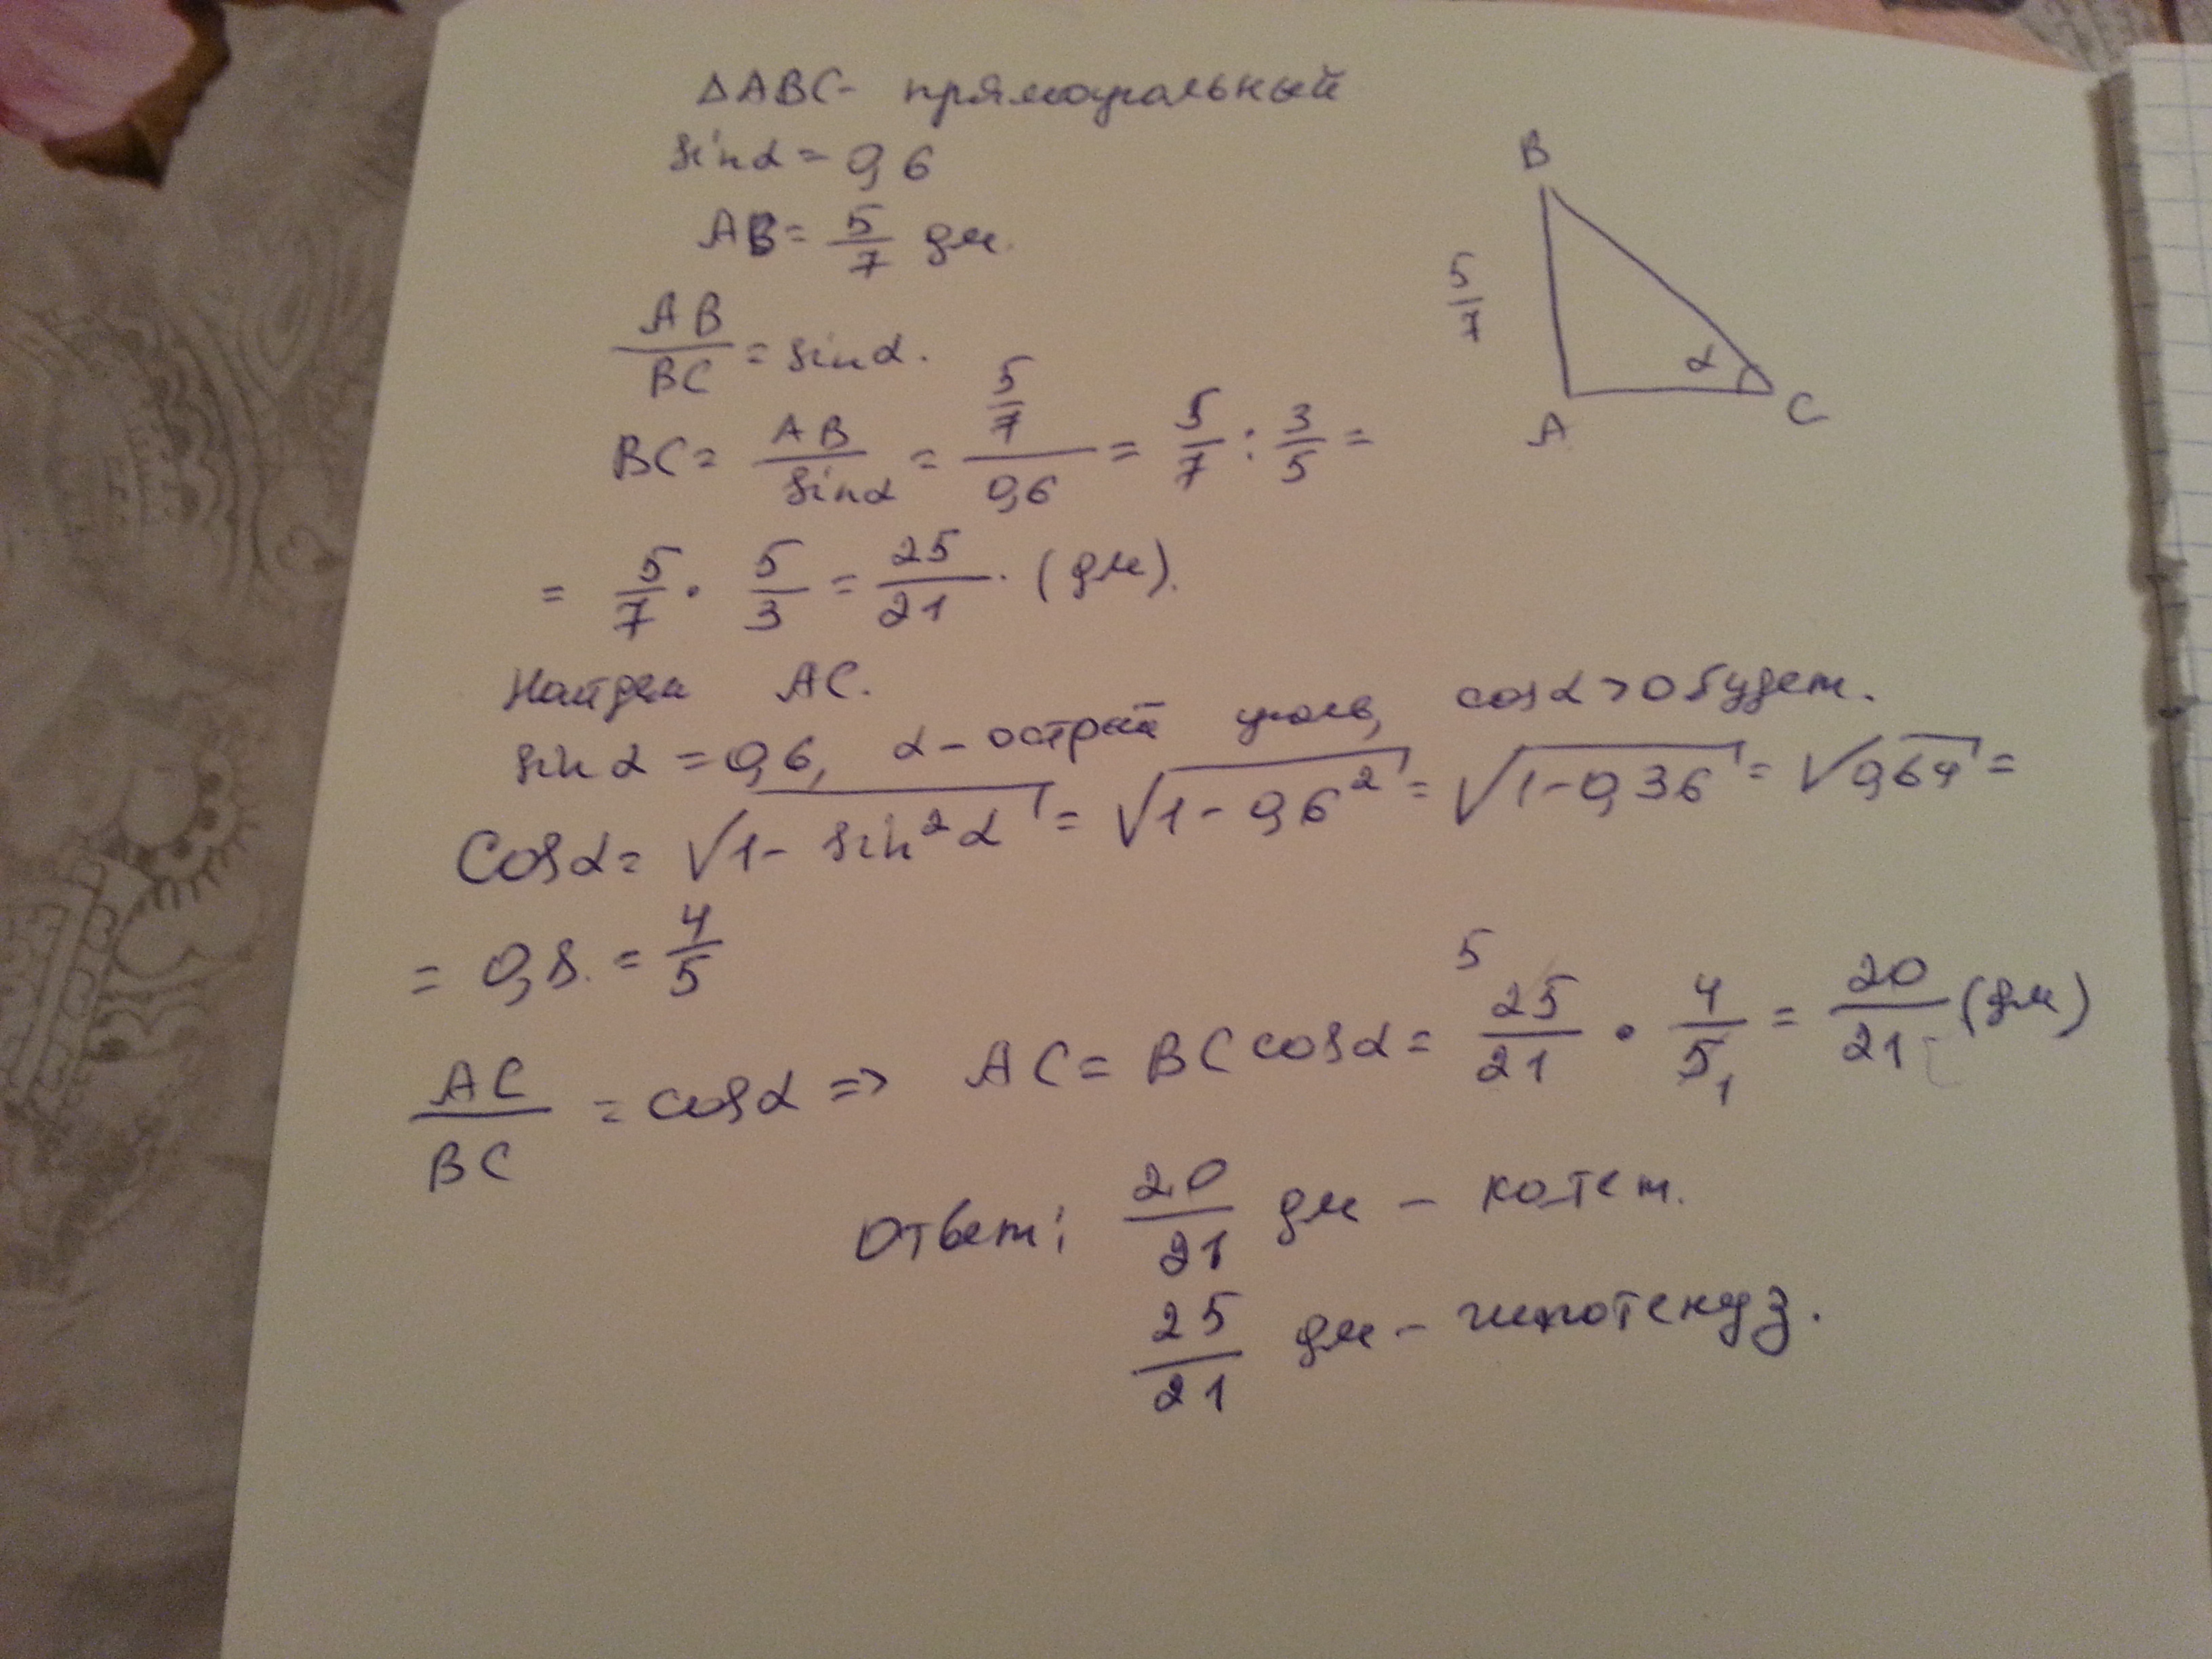 ΔABC- прямоугольный
sinα = 0,6
AB = 5/7 дм.
AB/BC = sinα.
BC = AB/sinα = (5/7)/0,6 = 5/7 : 3/5 =
= 5/7 · 5/3 = 25/21. (дм).
B
5/7
α
A
C
Найдем AC.
sin α = 0,6, α - острый угол, cosα > 0 будет.
Cosα = √(1 - sin²α) = √(1 - 0,6²) = √(1 - 0,36) = √0,64 =
= 0,8. = 4/5
AC/BC = cosα => AC = BC cosα = 5 25/21 · 4/5 1 = 20/21 (дм)
Ответ: 20/21 дм - катет.
25/21 дм - гипотенуз.